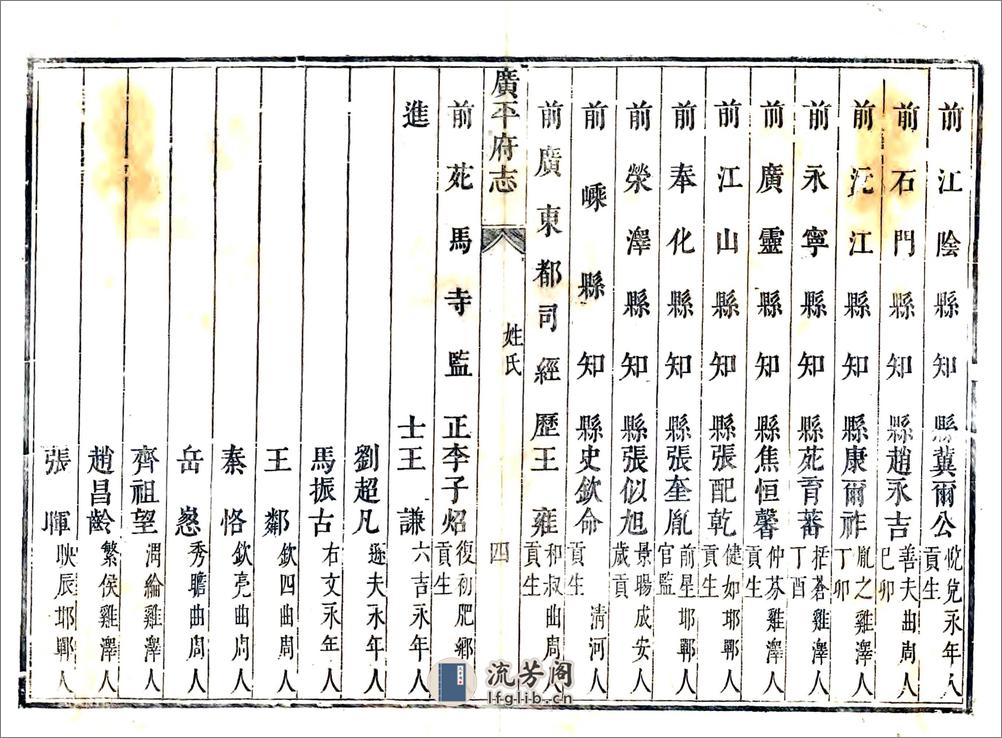 前江陰縣知縣冀爾公悅堯永年人貢生
前石門縣知縣趙永吉善夫曲周人己卯
前沅江縣知縣康爾祚胤之雞澤人丁卯
前永寧縣知縣苑育蕃括蒼雞澤人丁酉
前廣靈縣知縣焦恒馨仲芬雞澤人貢生
前江山縣知縣張配乾健如邯鄲人貢生
前奉化縣知縣張奎胤前星邯鄲人官監
前榮澤縣知縣張似旭景暘成安人歲貢
前嵊縣知縣史欽命清河人貢生
前廣東都司經歷王雍和叔曲周人貢生
廣平府志 姓氏 四
前苑馬寺監正李子炤復初肥鄉人貢生
進士王謙六吉永年人
劉超凡遜夫永年人
馬振古右文永年人
王鄰欽四曲周人
秦恪欽亮曲周人
岳㦤秀瞻曲周人
齊祖望渭綸雞澤人
趙昌齡繁侯雞澤人
張暉映辰邯鄲人
流芳阁
lfglib.cn